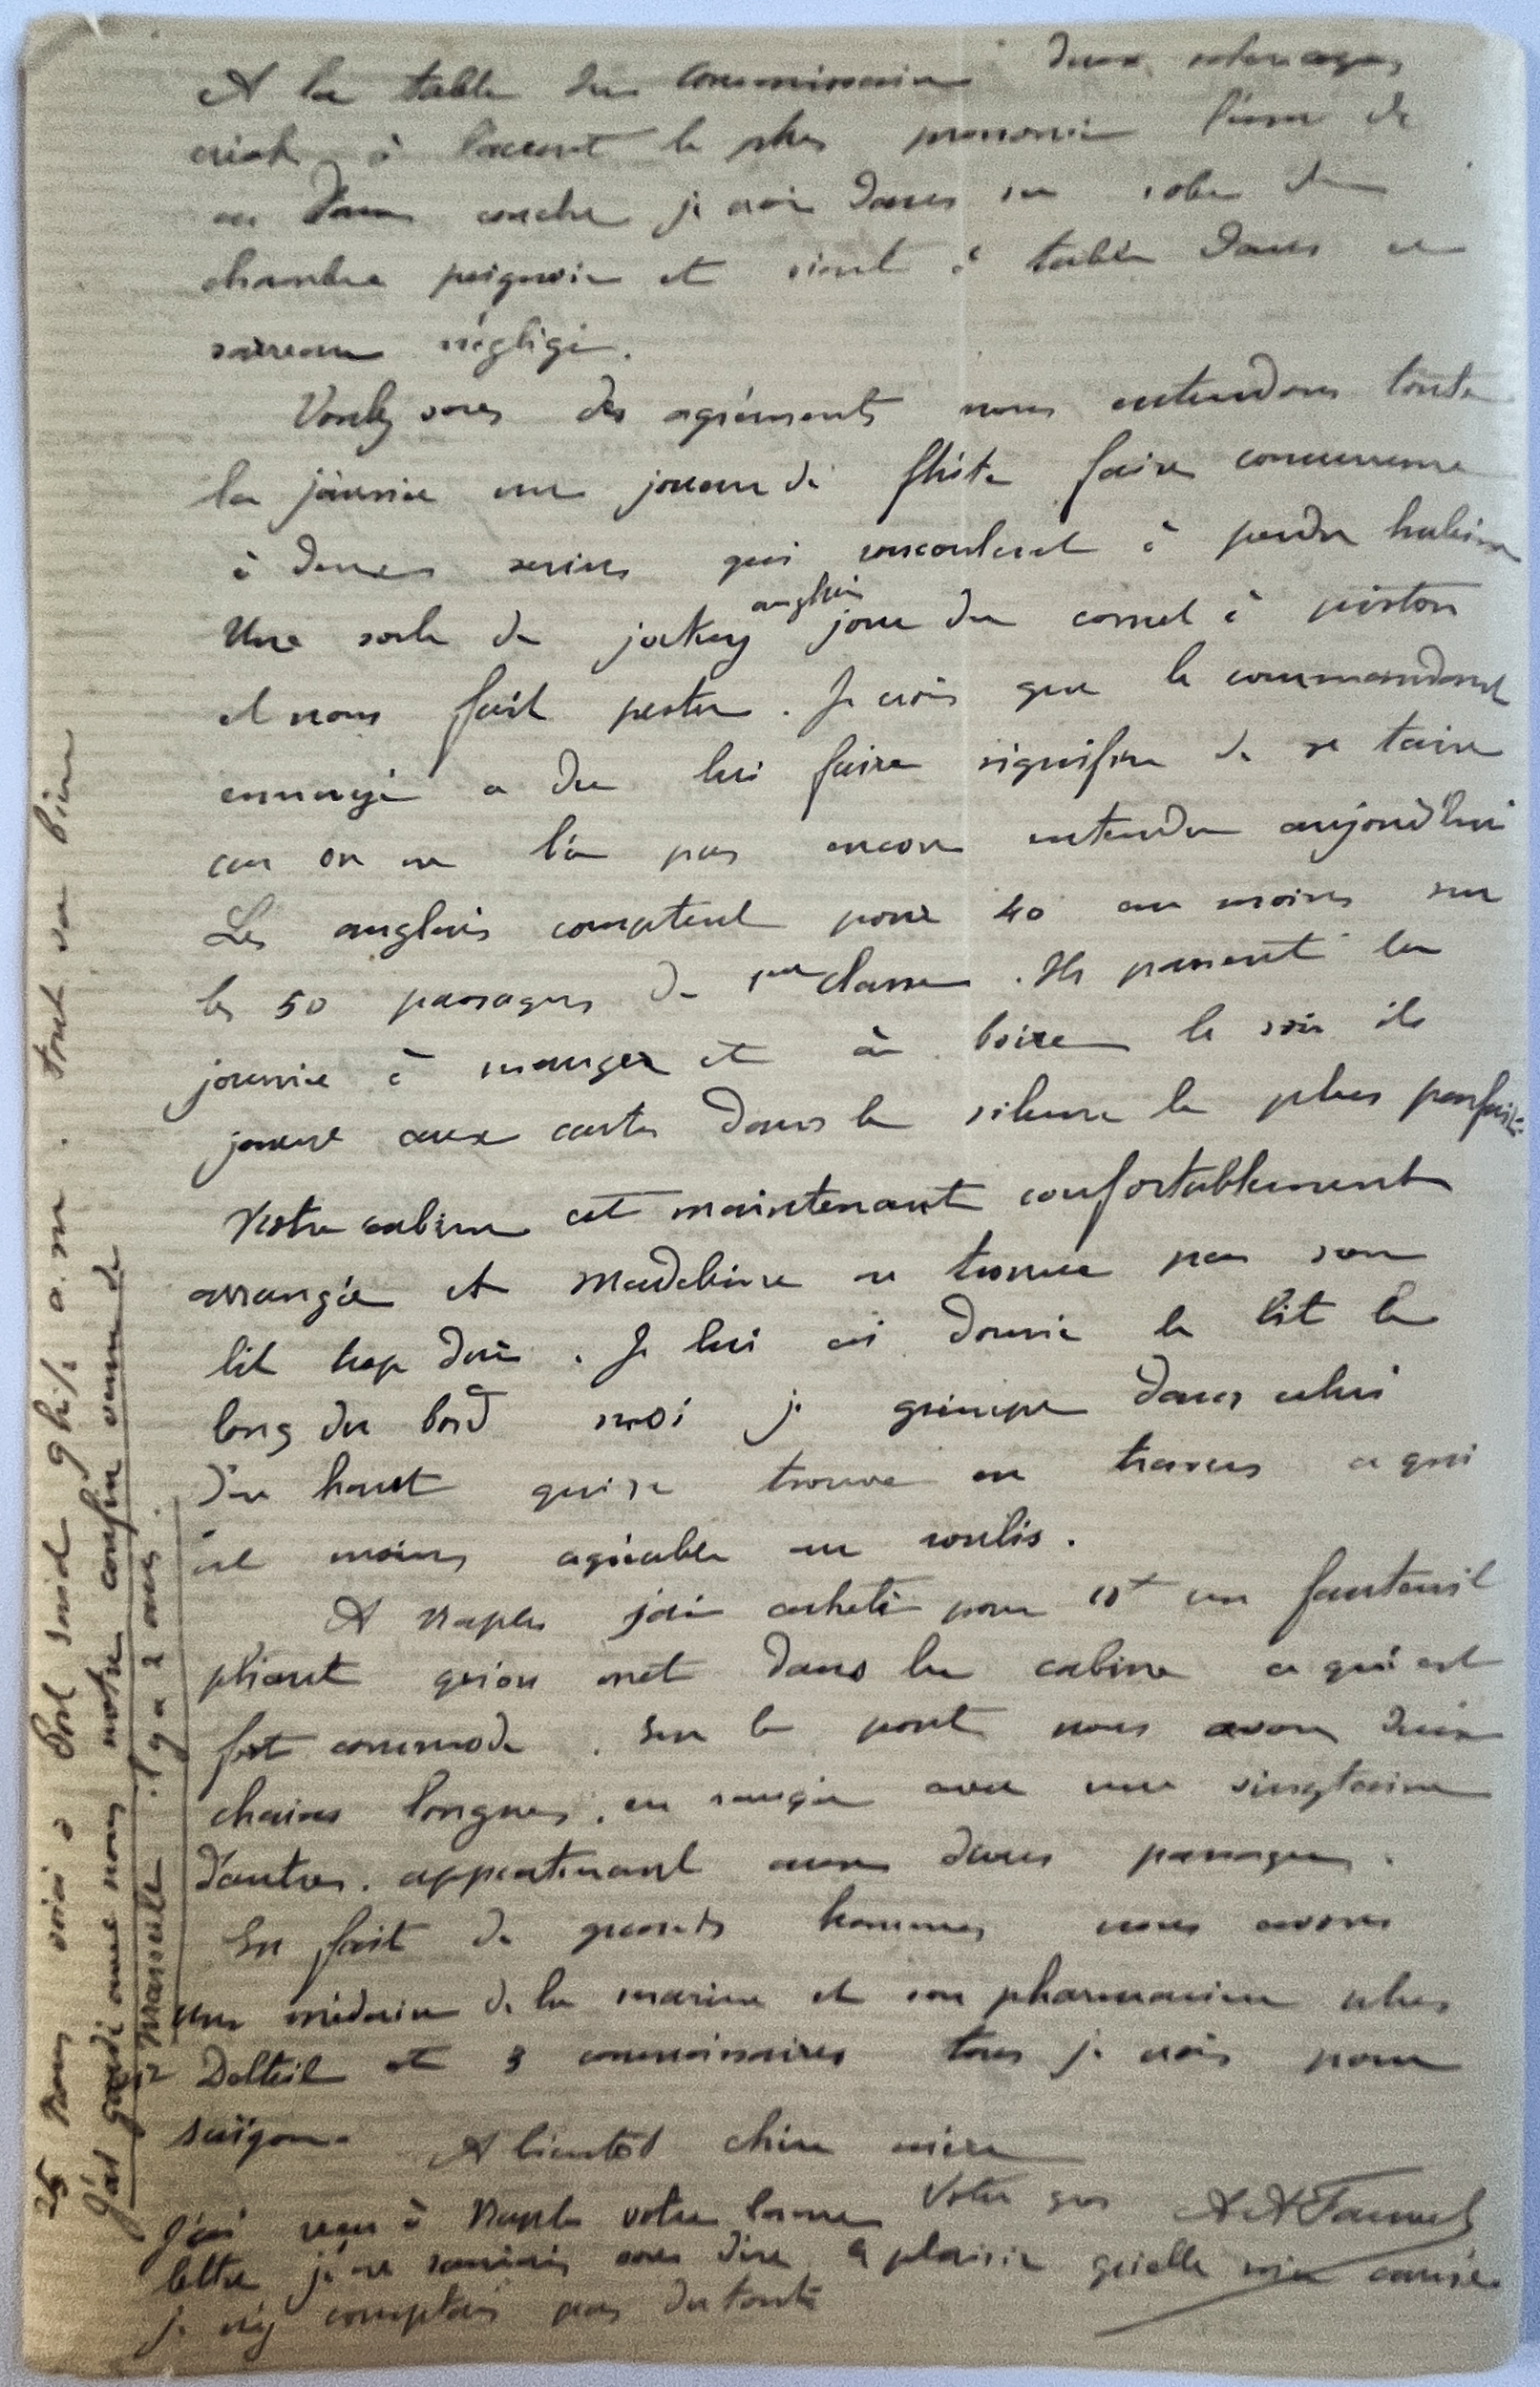 A la table du commissaire deux
à l'accent le plus prononcé l'une de
ces Dames couche je crois dans sa robe de
chambre peignoir et vient à table dans ce
négligé.
Voulez vous des agréments nous entendons toute
la journée un joueur de flûte faire concurrence
à deux serins qui roucoulent à perdre haleine
Une sorte de jockey anglais joue du cornet à piston
et nous fait pester. Je crois que le commandant
ennuyé a du lui faire signifier de se taire
car on ne l'a pas encore entendu aujourd'hui
Les anglais comptent pour 40 au moins sur
les 50 passagers de 1ere classe. Ils passent la
journée à manger et à boire le soir ils
jouent aux cartes dans le silence le plus parfait.
Notre cabine est maintenant confortablement
arrangée et Madeleine ne trouve pas son
lit trop dur. Je lui ai donné le lit le
long du bord moi je grimpe dans celui
d'en haut qui se trouve en travers ce qui
est moins agréable au roulis.
A Naples j'ai acheté pour un fauteuil
pliant qu'on met dans la cabine ce qui est
fort commode. Sur le pont nous avons deux
chaises longues, en rangée avec une vingtaine
d'autres. appartenant aux divers passagers.
En fait de grands hommes nous avons
un médecin de la marine et son pharmacien
Delteil et 3 commissaires tous je crois pour
Saïgon. A bientôt chère mère
Votre gros AAFaunel
J'ai reçu à Naples votre bonne
lettre je ne saurais vous dire le plaisir qu'elle m'a causé.
je n'y comptais pas du tout
25 Nous voici à Port Said 9h1/2 a.m. tout va bien
J'ai avec nous notre confin venu de
Marseille il y a 2 ans.